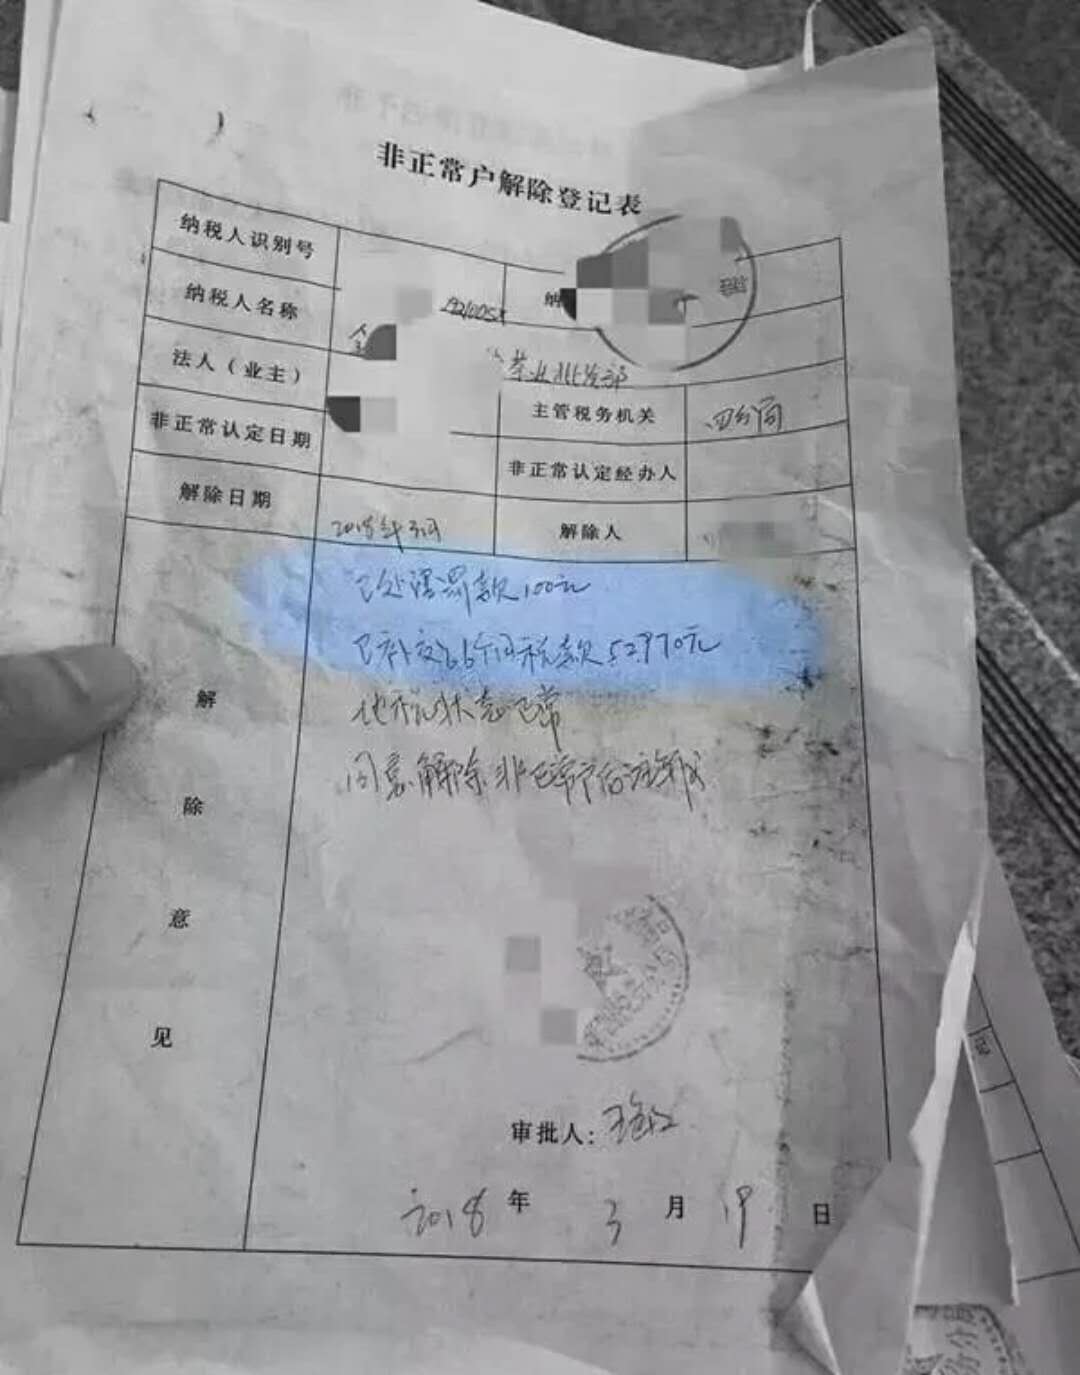 非正常户解除登记表
纳税人识别号
纳税人名称
法人（业主） 主管税务机关 四分局
非正常认定日期 非正常认定经办人
解除日期 2018年3月 解除人
已处理罚款100元
已补交66个月税款52970元
地税状态正常
同意解除非正常户后注销
解
除
意
见
审批人：
2018 年 3 月 19 日